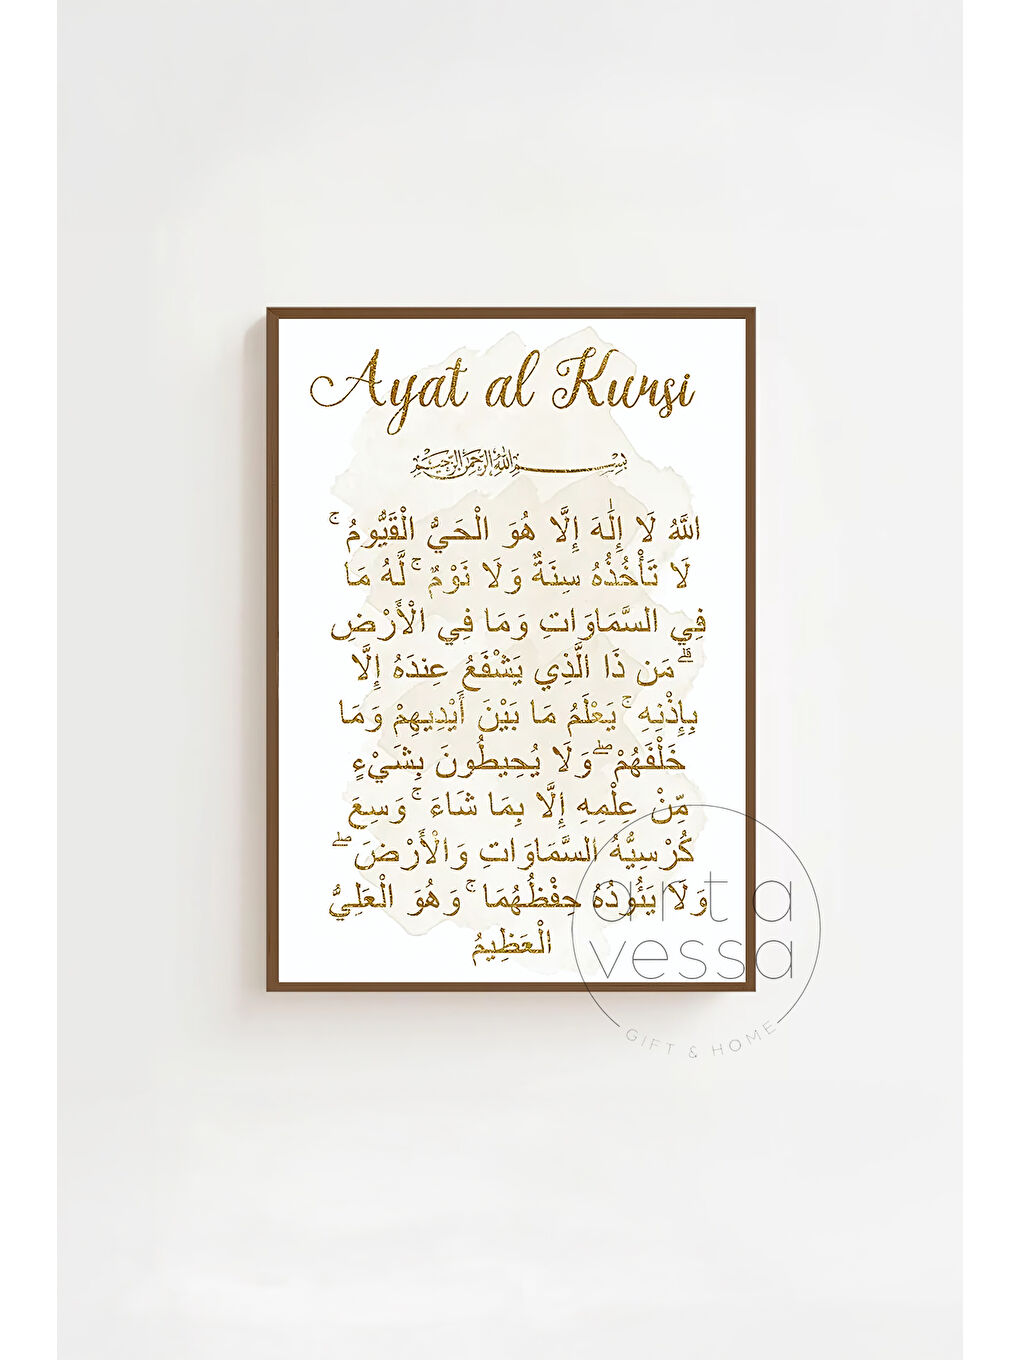 Ayat al Kursi
بِسْمِ اللهِ الرَّحْمٰنِ الرَّحِيْمِ
اللَّهُ لَا إِلَٰهَ إِلَّا هُوَ الْحَيُّ الْقَيُّومُ ۚ
لَا تَأْخُذُهُ سِنَةٌ وَلَا نَوْمٌ ۚ لَّهُ مَا
فِي السَّمَاوَاتِ وَمَا فِي الْأَرْضِ
ۗ مَن ذَا الَّذِي يَشْفَعُ عِندَهُ إِلَّا
بِإِذْنِهِ ۚ يَعْلَمُ مَا بَيْنَ أَيْدِيهِمْ وَمَا
خَلْفَهُمْ ۖ وَلَا يُحِيطُونَ بِشَيْءٍ
مِّنْ عِلْمِهِ إِلَّا بِمَا شَاءَ ۚ وَسِعَ
كُرْسِيُّهُ السَّمَاوَاتِ وَالْأَرْضَ ۖ
وَلَا يَئُودُهُ حِفْظُهُمَا ۚ وَهُوَ الْعَلِيُّ
الْعَظِيمُ
arta
vessa
GIFT & HOME